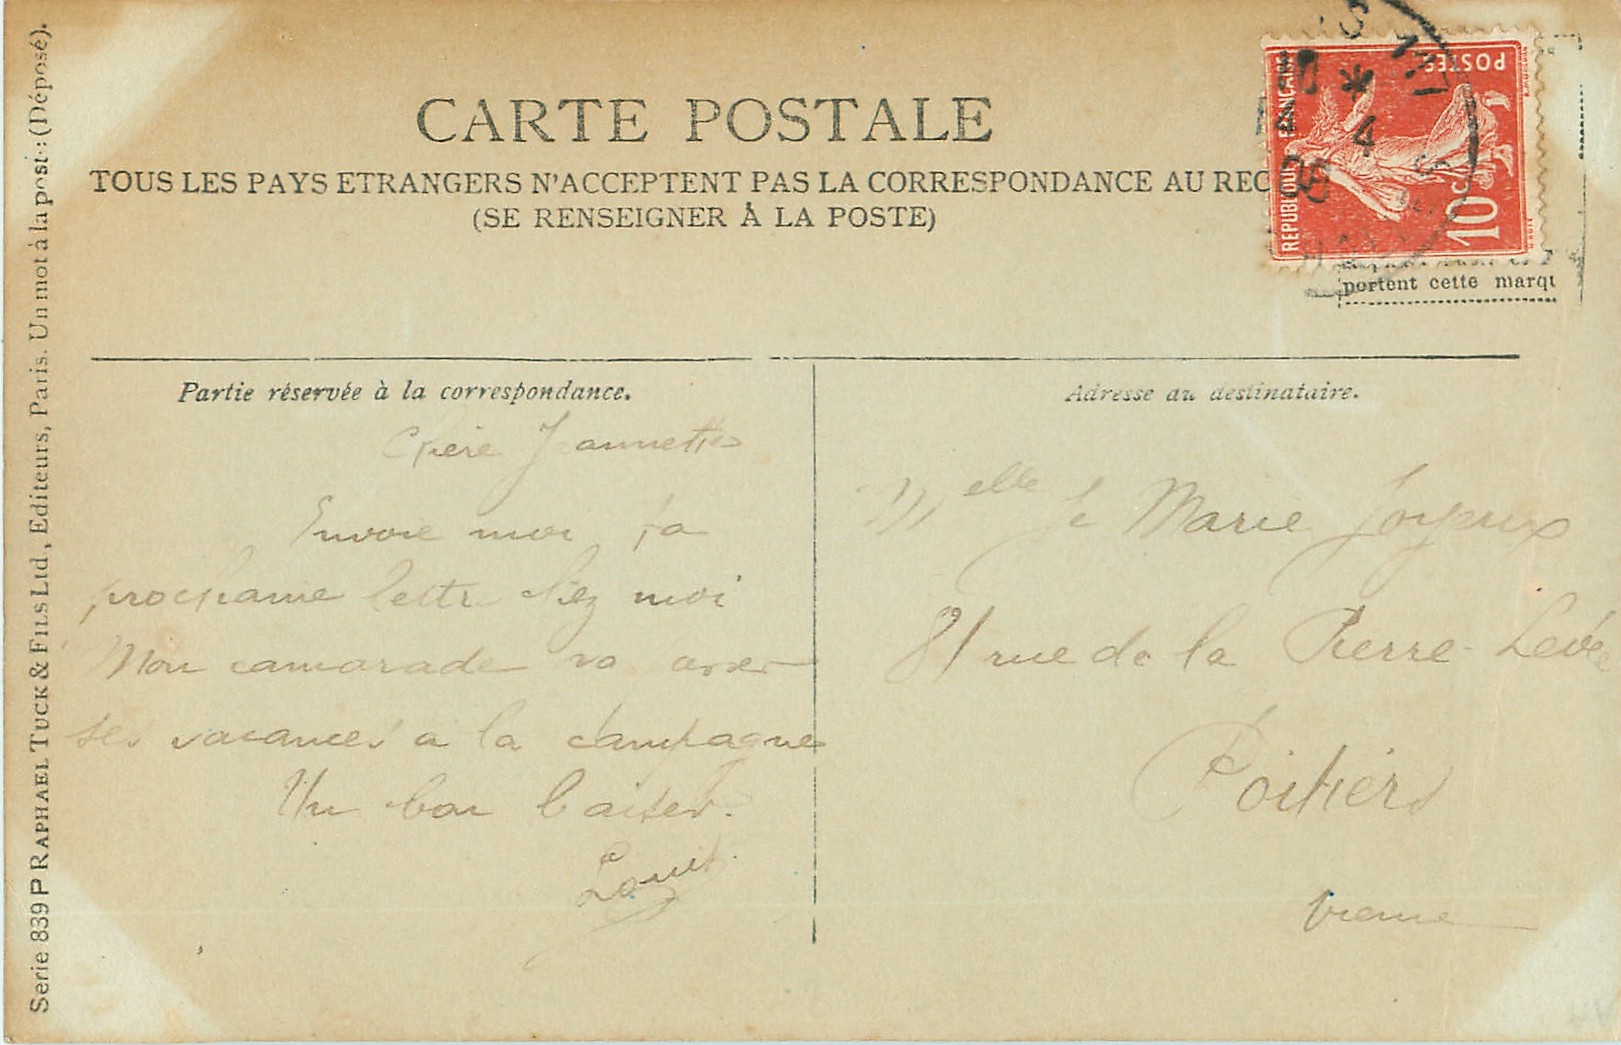 CARTE POSTALE
TOUS LES PAYS ETRANGERS N'ACCEPTENT PAS LA CORRESPONDANCE AU REC
(SE RENSEIGNER À LA POSTE)
REPUBLIQUE FRANÇAISE
POSTES
10 c
4
portent cette marqu
Serie 839 P RAPHAEL TUCK & FILS Ltd, Editeurs, Paris. Un mot à la poste: (Déposé).
Partie réservée à la correspondance.
Chère Jeannette
Envoie moi ta
prochaine lettre chez moi
Mon camarade va
ses vacances a la campagne
Un bon baiser.
Louis
Adresse du destinataire.
Melle Marie Joyeux
81 rue de la Pierre-Levée
Poitiers
Vienne